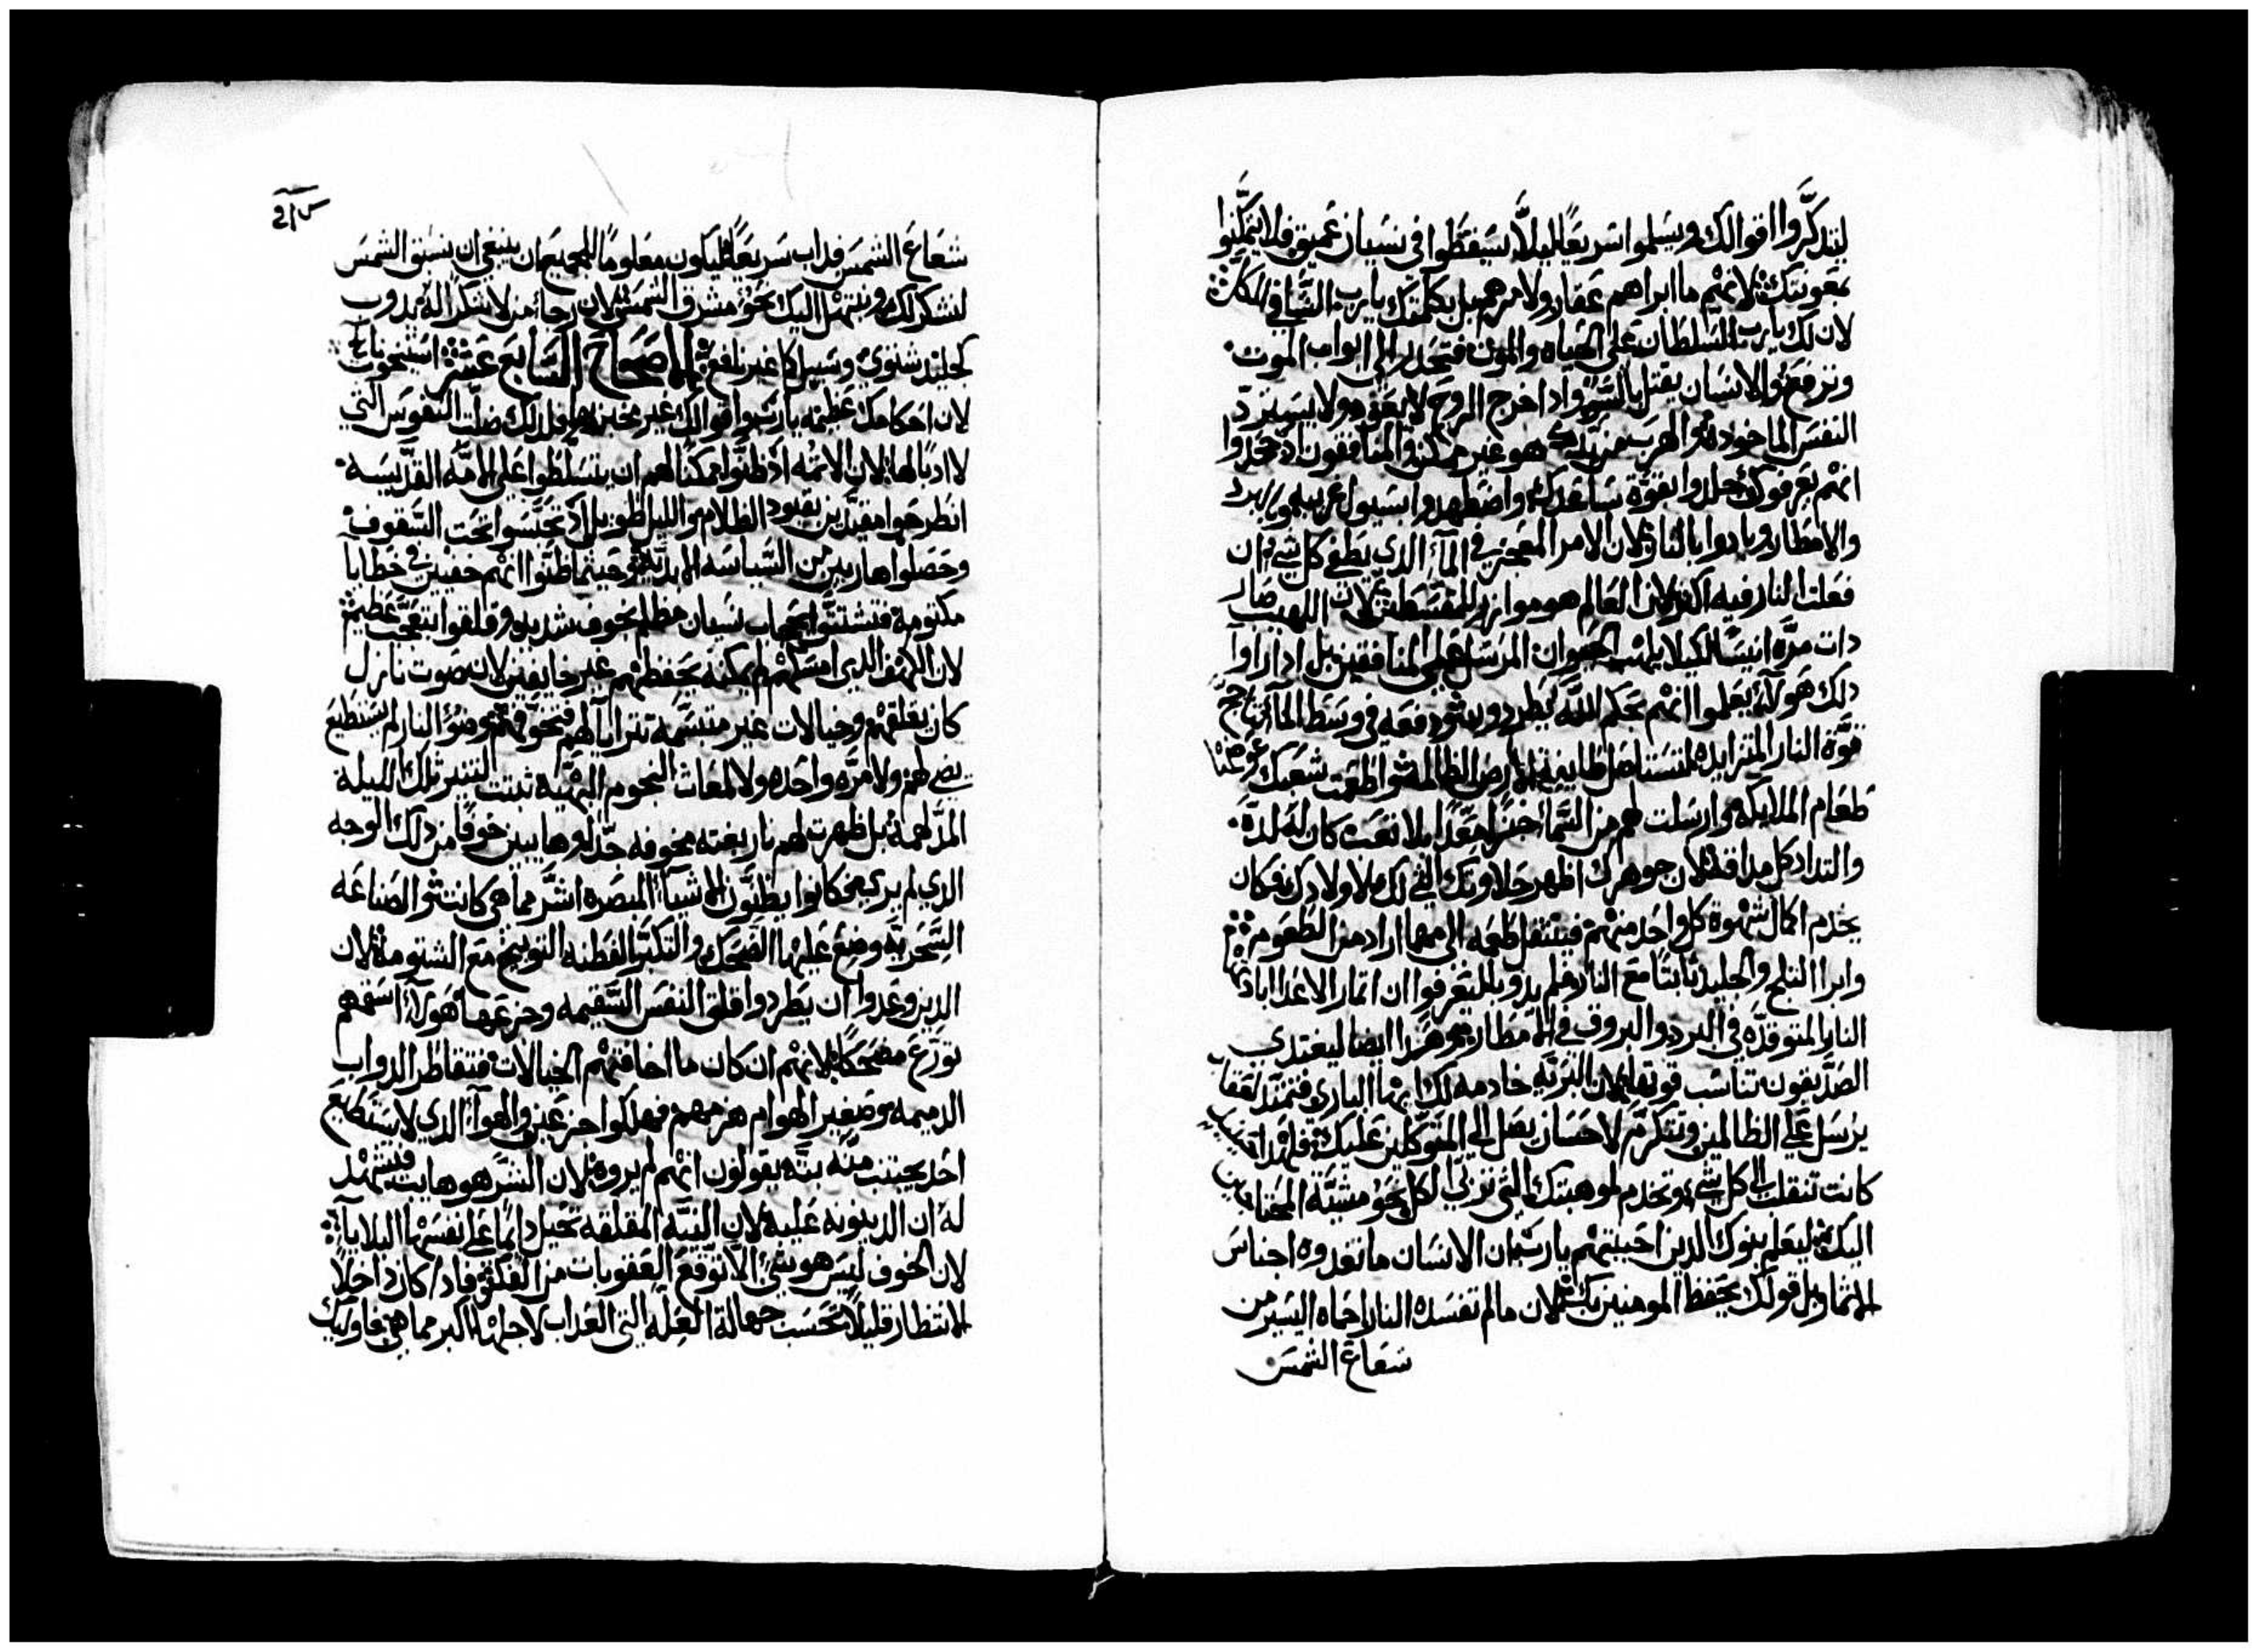 ليتذكروا اقوالك ويسلموا سريعًا ليلَّا يسقطوا في نسيان عميق فلا يتمكنوا
بمعونتك لانهم ما ابراهم عقار ولا مرهم بل كلمتك يا رب الشافي الكل
لان لك يا رب السلطان على الحياه والموت فتحدر الى ابواب الموت
وترفع والانسان يقتل بالشر واذا خرج الروح لا يعود ولا يسترد
النفس الماخوده والهرب من يدك هو غير ممكن والمنافقون اذ جحدوا
انهم يعرفوك جلدوا بقوة ساعدك واضطهدوا بسيول غريبه وببرد
والامطار وبادوا بالنار لان الامر المعجز في المآء الدي يطفي كل شي ان
فعلت النار فيه اكثر لان العالم هو موازر للمقسطين لان اللهيب صار
دات مرَّه انيسًا لكيلا يلهب الحيوان المرسل على المنافقين بل اذا راوا
دلك هولآء يعلموا انهم بحكم الله يطردون ودفعه في وسط المآء تاجج
قوَّة النار المتزايده لتستاصل الارض الظالمة واطعمت شعبك عوضًا
طعام الملايكه وارسلت لهم من السَّما خبزًا معدًّا بلا تعب كان له لدَّه
والتداد كل مداقه لان جوهرك اظهر حلاوتك التي لك لاولادك فكان
يخدم اكمال شهوة كل واحد منهم فينتقل طعمه الى مهما اراد من الطعوم
وابرا الثلج والجليد ثابتًا مع النار فلم يدوب ليعرفوا ان اتمار الاعدا ابادتها
النار المتوقدَّه في البرد والبروق في الامطار وهدا ايضا ليغتدي
الصدّيقون تناست قوتها لان البريّه خادمه لك ايها الباري فتمتد لعقاب
يرسل على الظالمين وتتكرَّم لاحسان يصل الى المتوكلين عليك فلهدا
كانت تنقلب الى كل شي وتخدم لموهبتك التي تربي الكل نحو مشيَّة المحتاجين
اليك ليعلم بنوك الدين احببتهم يا رب ان الانسان ما تغدوه اجناس
الاتمار بل قولك يحفظ المومنين بك لان مالم تفسده النار احماه اليسير من
شعاع الشمس
شعاع الشمس فداب سريعًا ليكون معلومًا للجميع ان ينبغي ان نسبق الشمس
لشكرك ونبتهل اليك نحو مشرق الشمس لان رجاء من لا يشكر اله يدوب
كجليد شتوي ويسيل كما غير نافع الاصحاح السابع عشر
لان احكامك عظيمه يا رب واقوالك غير مخبر بها فلدلك ضلّت النفوس التي
لا ادبًا لها لان الاتمه اذ ظنّوا ممكنًا لهم ان يتسلطوا على الامّه القدّيسه
انطرحوا مقيدين بقيود الظلام والليل طويل اذ تحبَّسوا تحت السقوف
وحصلوا هاربين من السّياسه الابديَّة وحيثما ظنّوا انهم خفيين في خطايا
مكتومه فتشتتوا بحجاب نسيان مظلم بخوف شديد وقلقوا بتعجّب عظيم
لان الكهف الدي امسكهم لم يمكنه يحفظهم غير خايفين لان صوت نازل
كان يقلقهم وخيالات غير متبسّمه تترايا لهم فتخوّفهم وضوُ النار لم يستطيع
يضي لهم ولا مرَّه واحده ولا لمعات النجوم البهيّة تبتت لتنير تلك الليلة
المدلهمة بل ظهرت لهم نار بغته مخوفه جدًّا وهايبين خوفًا من دلك الوجه
الدي لم يرى كانوا يظنّون الاشيآء المبصره اشرَّ مما هي كانت والصناعه
السّحريّه وضع عليها الضحك والتكبّر الفطنه التوبيخ مع الشتومه لان
الدين وعدوا ان يطردوا قلق النفس السّقيمه وجزعها هولآء اسقمهم
تورّع مضحكًا لانهم ان كان ما اخافتهم الخيالات فتقاطر الدواب
الدميمه وصفير الهوام هزمهم فهلكوا جزعين والهوآء الدي لا يستطيع
احد يجتنب منه بتَّه يقولون انهم لم يروه لان الشر هو هايب فيشهد
له ان الدينونه عليه لان النيّه المقلقه تخيل دايمًا على نفسها البلايا
لان الخوف ليس هو شي الا توقع العقوبات من الفكر فاد كان داخلًا
الانتظار قليلًا تحسب جهالة العلّه التي العداب لاجلها اكبر مما هي فاوليك